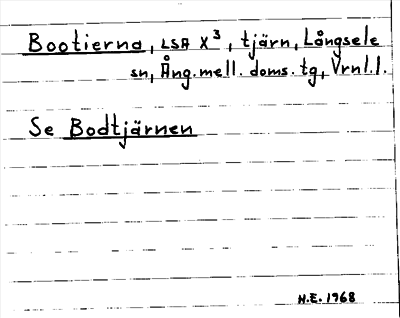 Bootierna, LSA X³, tjärn, Långsele
sn, Ång. mell. doms. tg, Vrnl.l.
Se Bodtjärnen
H.E. 1968